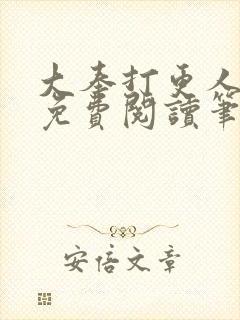 大奉打更人
免費閱讀筆
安倍文章